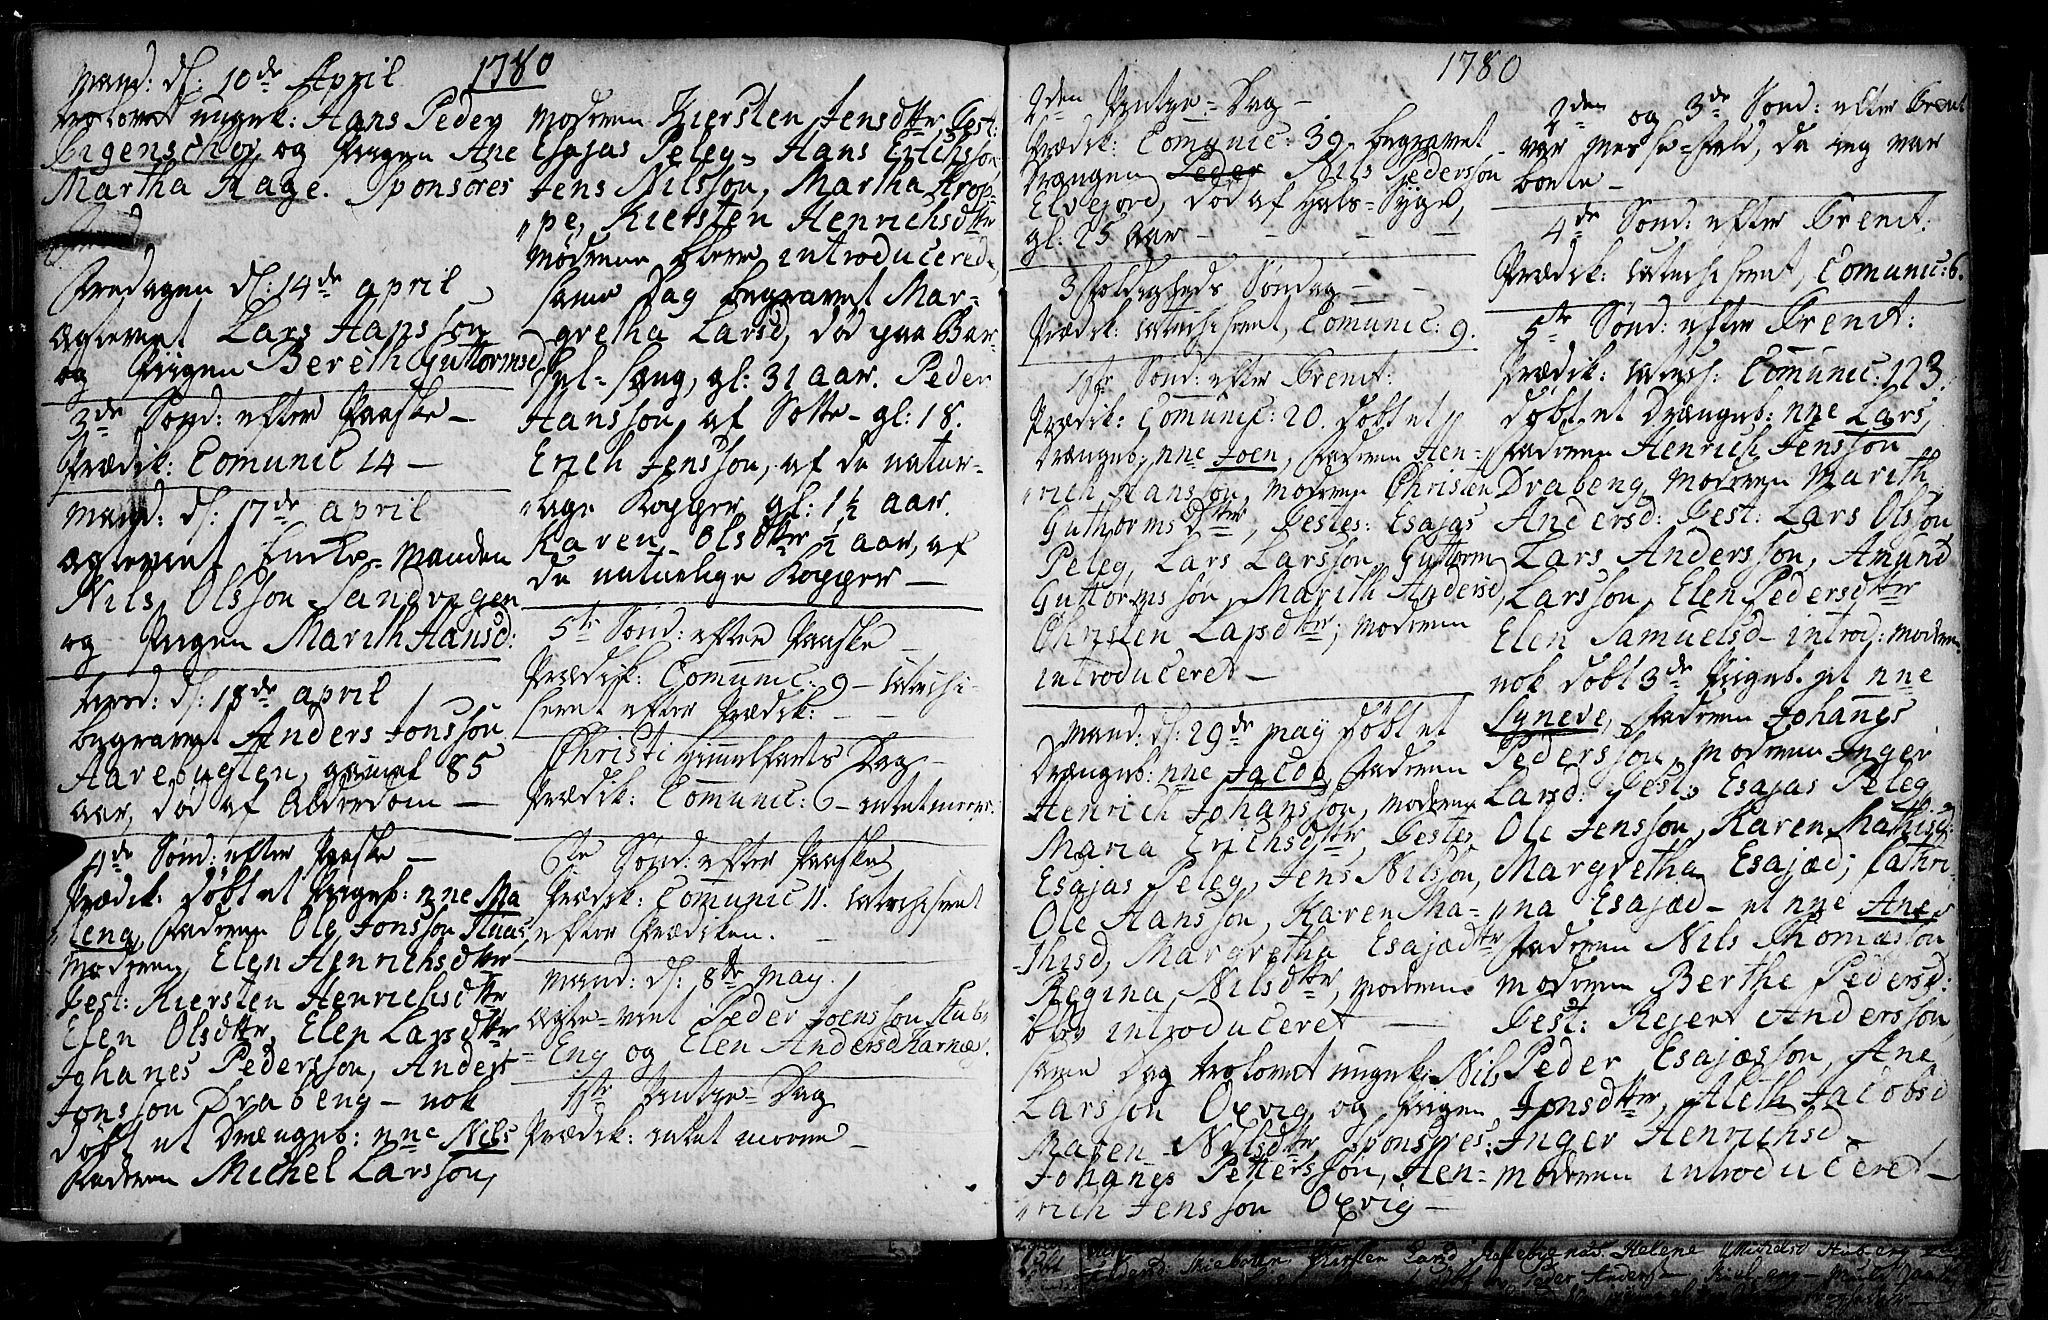 1780
Mand: d: 10de April
trolovet ungk: Hans Peder
Eigenschou og Pigen Ane
Martha Aage. Sponsores
Fredagen d: 14de april
Ægteviet Lars Hansson
og Pigen Bereth Guttormsd
3de Sønd: efter Paaske –
Prædik: Comunic 14 –
Mand: d: 17de april
Ægteviet Enke-Manden
Nils Olsson Sandvigen
og Pigen Marith Hansd:
tirsd: d: 18de april
begravet Anders Jonsson
Aarebugten, gamel 85
aar, død af Alderdom –
4de Sønd: efter Paaske –
Prædik: døbt et Pigeb: nne Ma
leng, Faderen Ole Jonsson
Moderen Elen Henrichsdtter
Gest: Kiersten Henrichsdtter
Elen Olsdtter, Elen Larsdtter
Johanes Pedersson, Anders
Jonsson Drabeng – nok
døbt et Drængeb: nne Nils
Faderen Michel Larsson,
Moderen Kiersten Jensdtter Gest:
Esajas Peleg – Hans Erichsson
Jens Nilsson, Martha Krop-
pe, Kiersten Henrichsdtter
Mødrene bleve introducered,
samme Dag begravet Mar-
gretha Larsd, død paa Bar-
sel-sæng, gl: 31 aar. Peder
Hansson af Sotte – gl: 18.
Erich Jensson, af de natur-
lige Kopper gl: 1½ aar.
Karen Olsdtter ½ aar, af
de naturlige Kopper –
5te Sønd: efter Paaske –
Prædik: Comunic: 9 – catechi-
seret efter Prædik: –
Christi Himmelfarts Dag –
Prædik: Comunic: 6 – intet meere.
6te Sønd: efter Paaske
Prædik: Comunic 11. catechiseret
efter Prædiken.
Mand: d: 8de May.
Ægte-viet Peder Joensson Stub-
Eng og Elen Andersd Karnæs.
1ste Pintze-Dag
Prædik: intet meere –
1780
2den Pintze-Dag –
Prædik: Comunic: 39. begravet
Drængen Peder Nils Pedersson
Elvejord, død af Hals-Syge,
gl: 25 Aar –
3foldigheds Søndag –
Prædik: catechiseret, Comunic: 9.
1ste Sønd: efter Trenit:
Prædik: Comunic: 20. døbt et
Drængeb: nne Joen, Faderen Hen-
rich Hansson, Moderen Christen
Guthormsdtter, Gestes: Esajas
Peleg, Lars Larsson, Guttorm
Guttormsson, Marith Andersd,
Christen Larsdtter; Moderen
introduceret –
Mand: d: 29de May døbt et
Drængeb: nne Jacob, Faderen
Henrich Johansson, Moderen
Maria Erichsdtter, Gestes
Esajas Peleg, Jens Nilsson,
Ole Hansson, Karen Ma-
thisd, Margretha Esajædtter
Regina Nilsdtter, Moderen
blev introduceret –
samme Dag trolovet ungk: Nils
Larsson Oxvig og Pigen
Maren Nilsdtter, Sponsores:
Johanes Pettersson, Hen-
rich Jensson Oxvig –
2den og 3de Sønd: efter Trenit
var Messe-fald, da ieg var
borte –
4de Sønd: efter Trenit:
Prædik: catechiseret, Comunic: 6.
5te Sønd: efter Trenit:
Prædik: catech: Comunic: 123.
døbt et Drængeb: nne Lars,
Faderen Henrich Jensson
Drabeng, Moderen Marith
Andersd: Gest: Lars Olsson
Lars Andersson, Amund
Larsson, Elen Pedersdtter
Elen Samuelsd – introd: Moderen –
nok døbt 3de Pigeb. et nne
Syneve, Faderen Johanes
Pedersson, Moderen Inger
Larsd: Gest: Esajas Peleg
Ole Jensson, Karen Mathisd:
Margretha Esajæd; Cathri-
na Esajæd – et nne Ane
Faderen Nils Thomæsson
Moderen Berthe Pedersd:
Gest: Rejert Andersson,
Peder Esajæsson, Ane
Jonsdtter, Aleth Jacobsd
Inger Henrichsd –
Moderen introduceret –